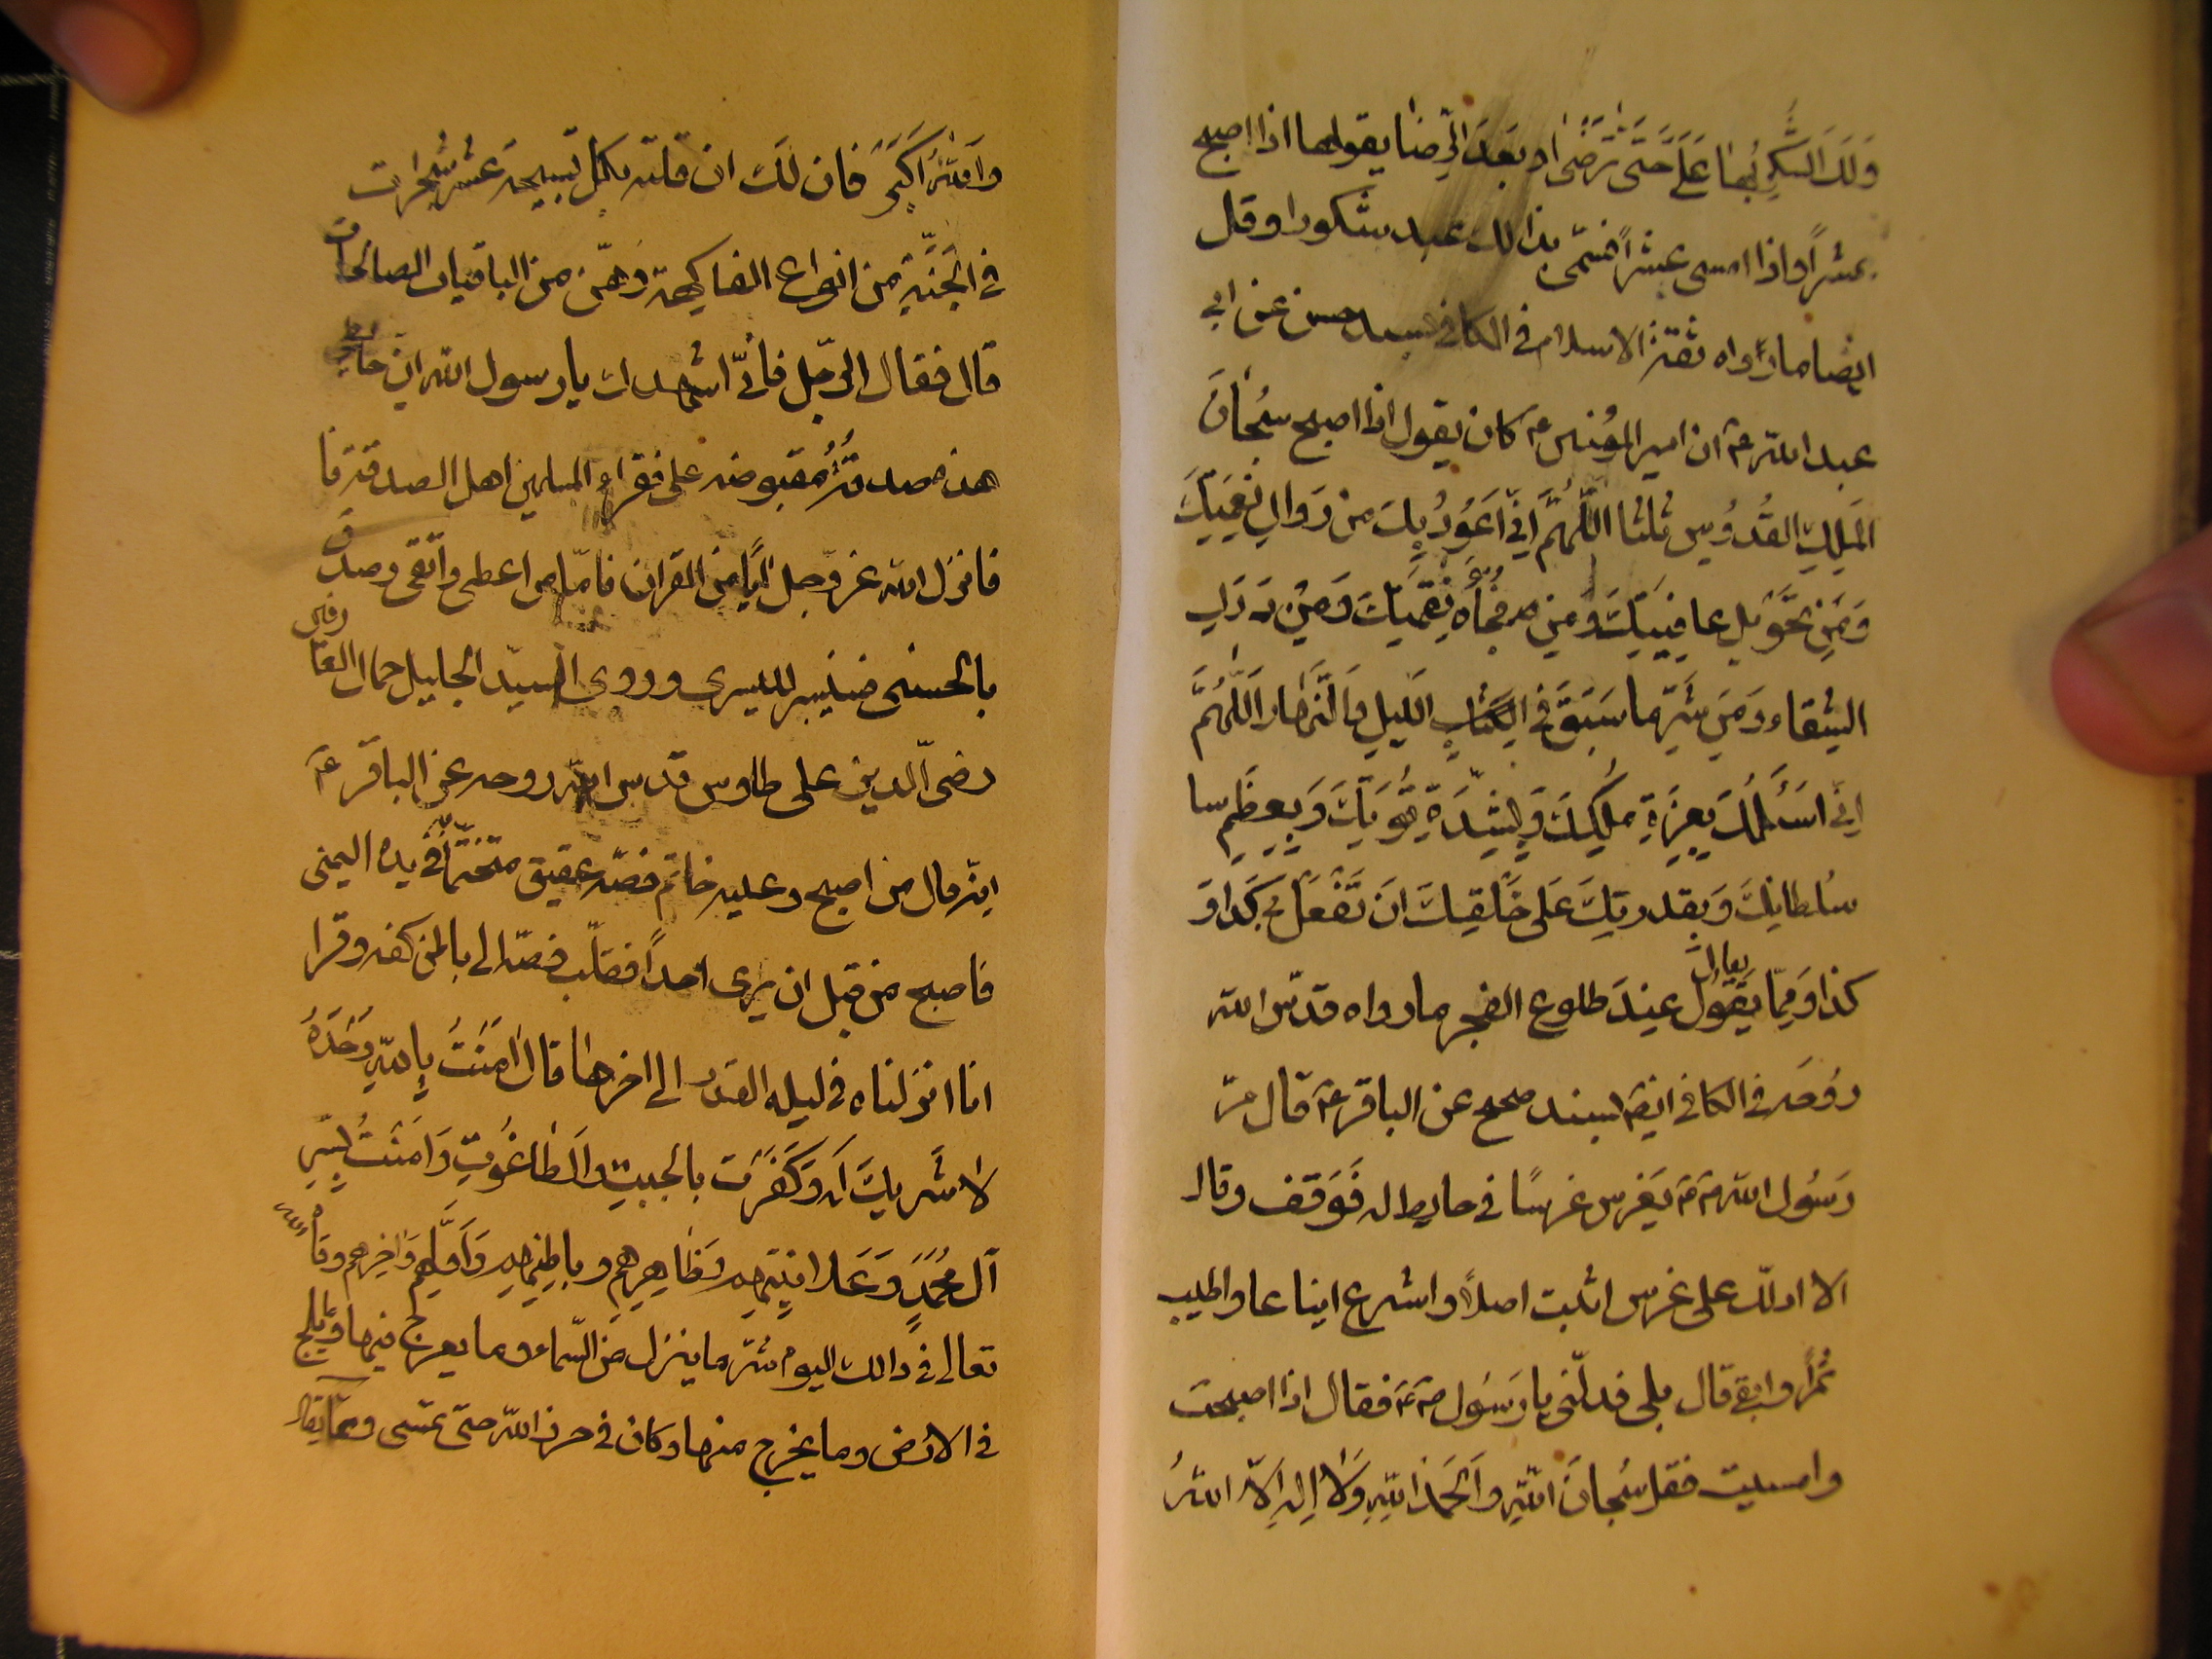 وَلَكَ الشُّكرُ بُها عَلَىَّ حَتّى تَرضى او بَعدَ الرِّضا يقولها اذا اصبح
عشراً واذا امسى عشراً فسمّى بذالك عبد شكورا وقل
ايضا مارواه ثقتة الاسلام فى الكافى بسند حسن عن ابى
عبد اللّه عَ ان امير المؤمنين عَ كان يقول اذا اصبح سُبْحانَ
المَلِكِ القُدُّوس ثلثا اللّهُمَّ اِنّى اَعُوذُ بِكَ من زَوالِ نِعْمَتِكَ
وَمَنِ تَحَوِّيل عافيَتِكَ وَمِن فجأه نِقْمَتِكَ وَمِنْ دَرَكِ
الشقاء وَمَن شرِّ ما سَبَقَ فى الكِتٰابِ الَليلِ وَالنَّهٰار اَللّهُمَّ
اِنّى اَسْئَلُكَ بِعِزَةِ مُلْكِكَ وَبِشِدَةِ قُوَّتِكَ وَبِعِظَمِ سا
سُلطانِكَ وَبِقدرتِكَ عَلى خَلْقِكَ اَن تَفْعَلَ بى كَذا وَ
كذا وَمِمّا يقول يقال عِندَ طلوع الفجر مارواه قدّس اللّه
روُحَه فى الكافى ايضً بسند صحيح عن الباقر عَ قال مرّ
رَسُول اللّه صَ يَغرس غرسًا فى حايط له فَوَقف وقال
الا ادلّك على غرس اثبت اصلاً واشرع ايناعا واطيب
ثُمراً وابقى قال بلى فدلّنى يا رَسُول صَ عَ فقال اذا اصبحتَ
وامسيت فقل سُبحانَ اللّهِ وَالحَمدُ للّهِ وَلا اِله اِلاّ اللّهُ
وَاللّهُ اَكْبَر فان لَكَ ان قلته بكل تسبيحة عشر شجرات
فى الجَنَّةِ من انواع الفاكهة وهنّ من الباقيات الصالحات
قال فقال الرّجل فانّى اشهدك يا رسول اللّه ان حائطى
هذه صدقةٌ مقبوضه على فقراء المسلمين اهل الصدقة فا
فانزل اللّه عزوجل اٰيًا من القران فامّا من اعطى واتّقى وصدّق
بالحسنى فسنيسره لليسرى وروى السيّد الجليل جمال العارفين
رضى الّدين على طاوس قدس اللّه روحه عن الباقر عَ
انّه قال من اصبح وعليه خاتم فصّه عقيق متختّما فى يده اليمنى
فاصبح من قبل ان يرى احداً فقلّب فصّه الى باطن كفه وقرا
انا انزلناه فى ليله القدر الى اخرها قال امَنْتُ بِاللّهِ وَحْدَهُ
لاٰ شَريكَ لَه وَكَفَرْتُ بالجبتِ وَالطّاغُوتِ وَامَنتُ بِسِرِّ
آل مُحَمَّدٍ وَعَلانيَتِهِم وَظٰاهِرِهِم وباطِنِهِم وَاَوَّلِهِم وَاٰخِرِهم وقاه اللّه
تعالى فى ذالك اليوم شرّ ما ينزل من السّماء وما يعرج فيها وما يلج
فى الارض وما يخرج منها وكان فى حرز اللّه حتى يمسى وممّا يقال